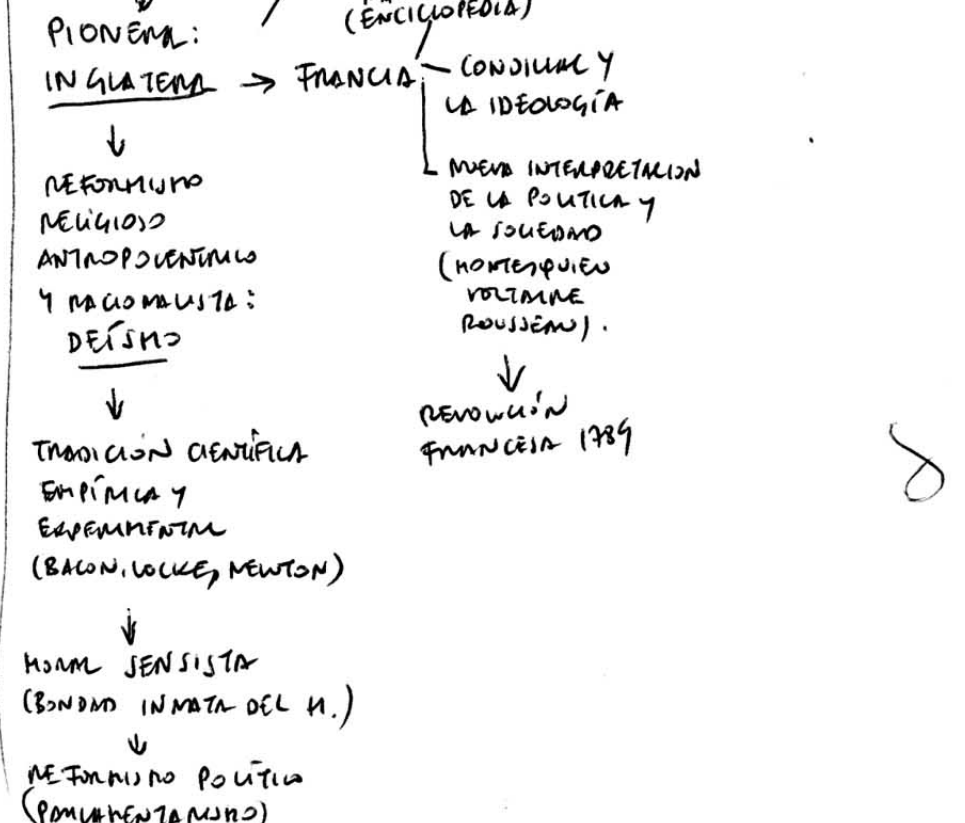 (ENCICLOPEDIA)
PIONERA:
INGLATERA → FRANCIA:
CONDILLAC Y
LA IDEOLOGÍA
NUEVA INTERPRETACION
DE LA POLITICA Y
LA SOCIEDAD
(MONTESQUIEU
VOLTAIRE
ROUSSEAU).
↓
REVOLUCIÓN
FRANCESA 1789
↓
REFORMISMO
RELIGIOSO
ANTROPOCENTRICO
Y RACIONALISTA:
DEÍSMO
↓
TRADICIÓN CIENTÍFICA
EMPÍRICA Y
EXPERIMENTAL
(BACON, LOCKE, NEWTON)
↓
MORAL SENSISTA
(BONDAD INNATA DEL H.)
↓
REFORMISMO POLÍTICO
(PARLAMENTARISMO)
8